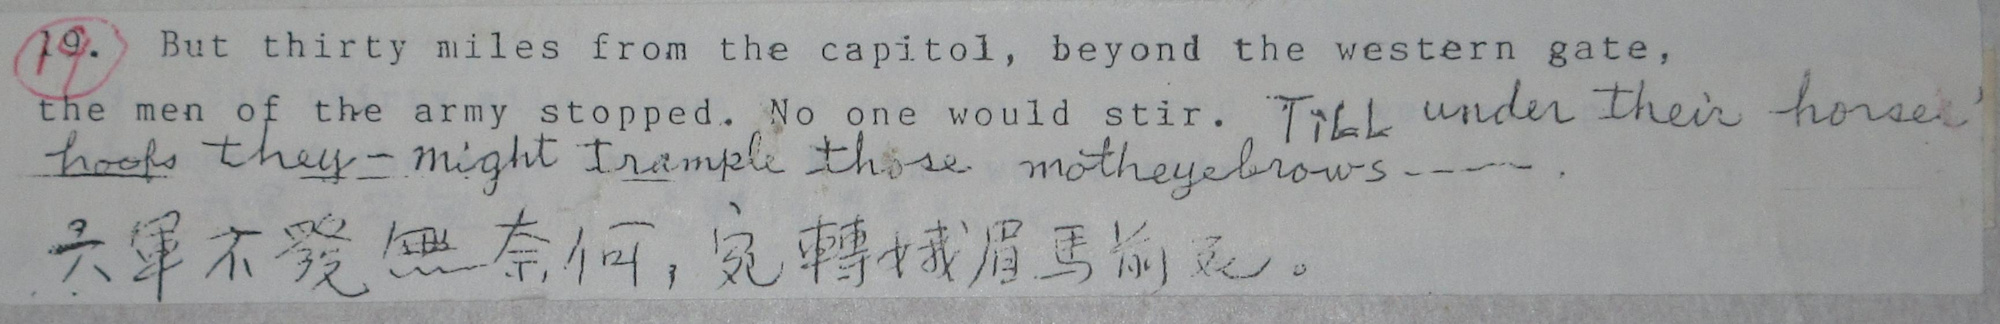 19. But thirty miles from the capitol, beyond the western gate,
the men of the army stopped. No one would stir. Till under their horses'
hoofs they - might trample those motheyebrows ------.
六軍不發無奈何，宛轉娥眉馬前死。